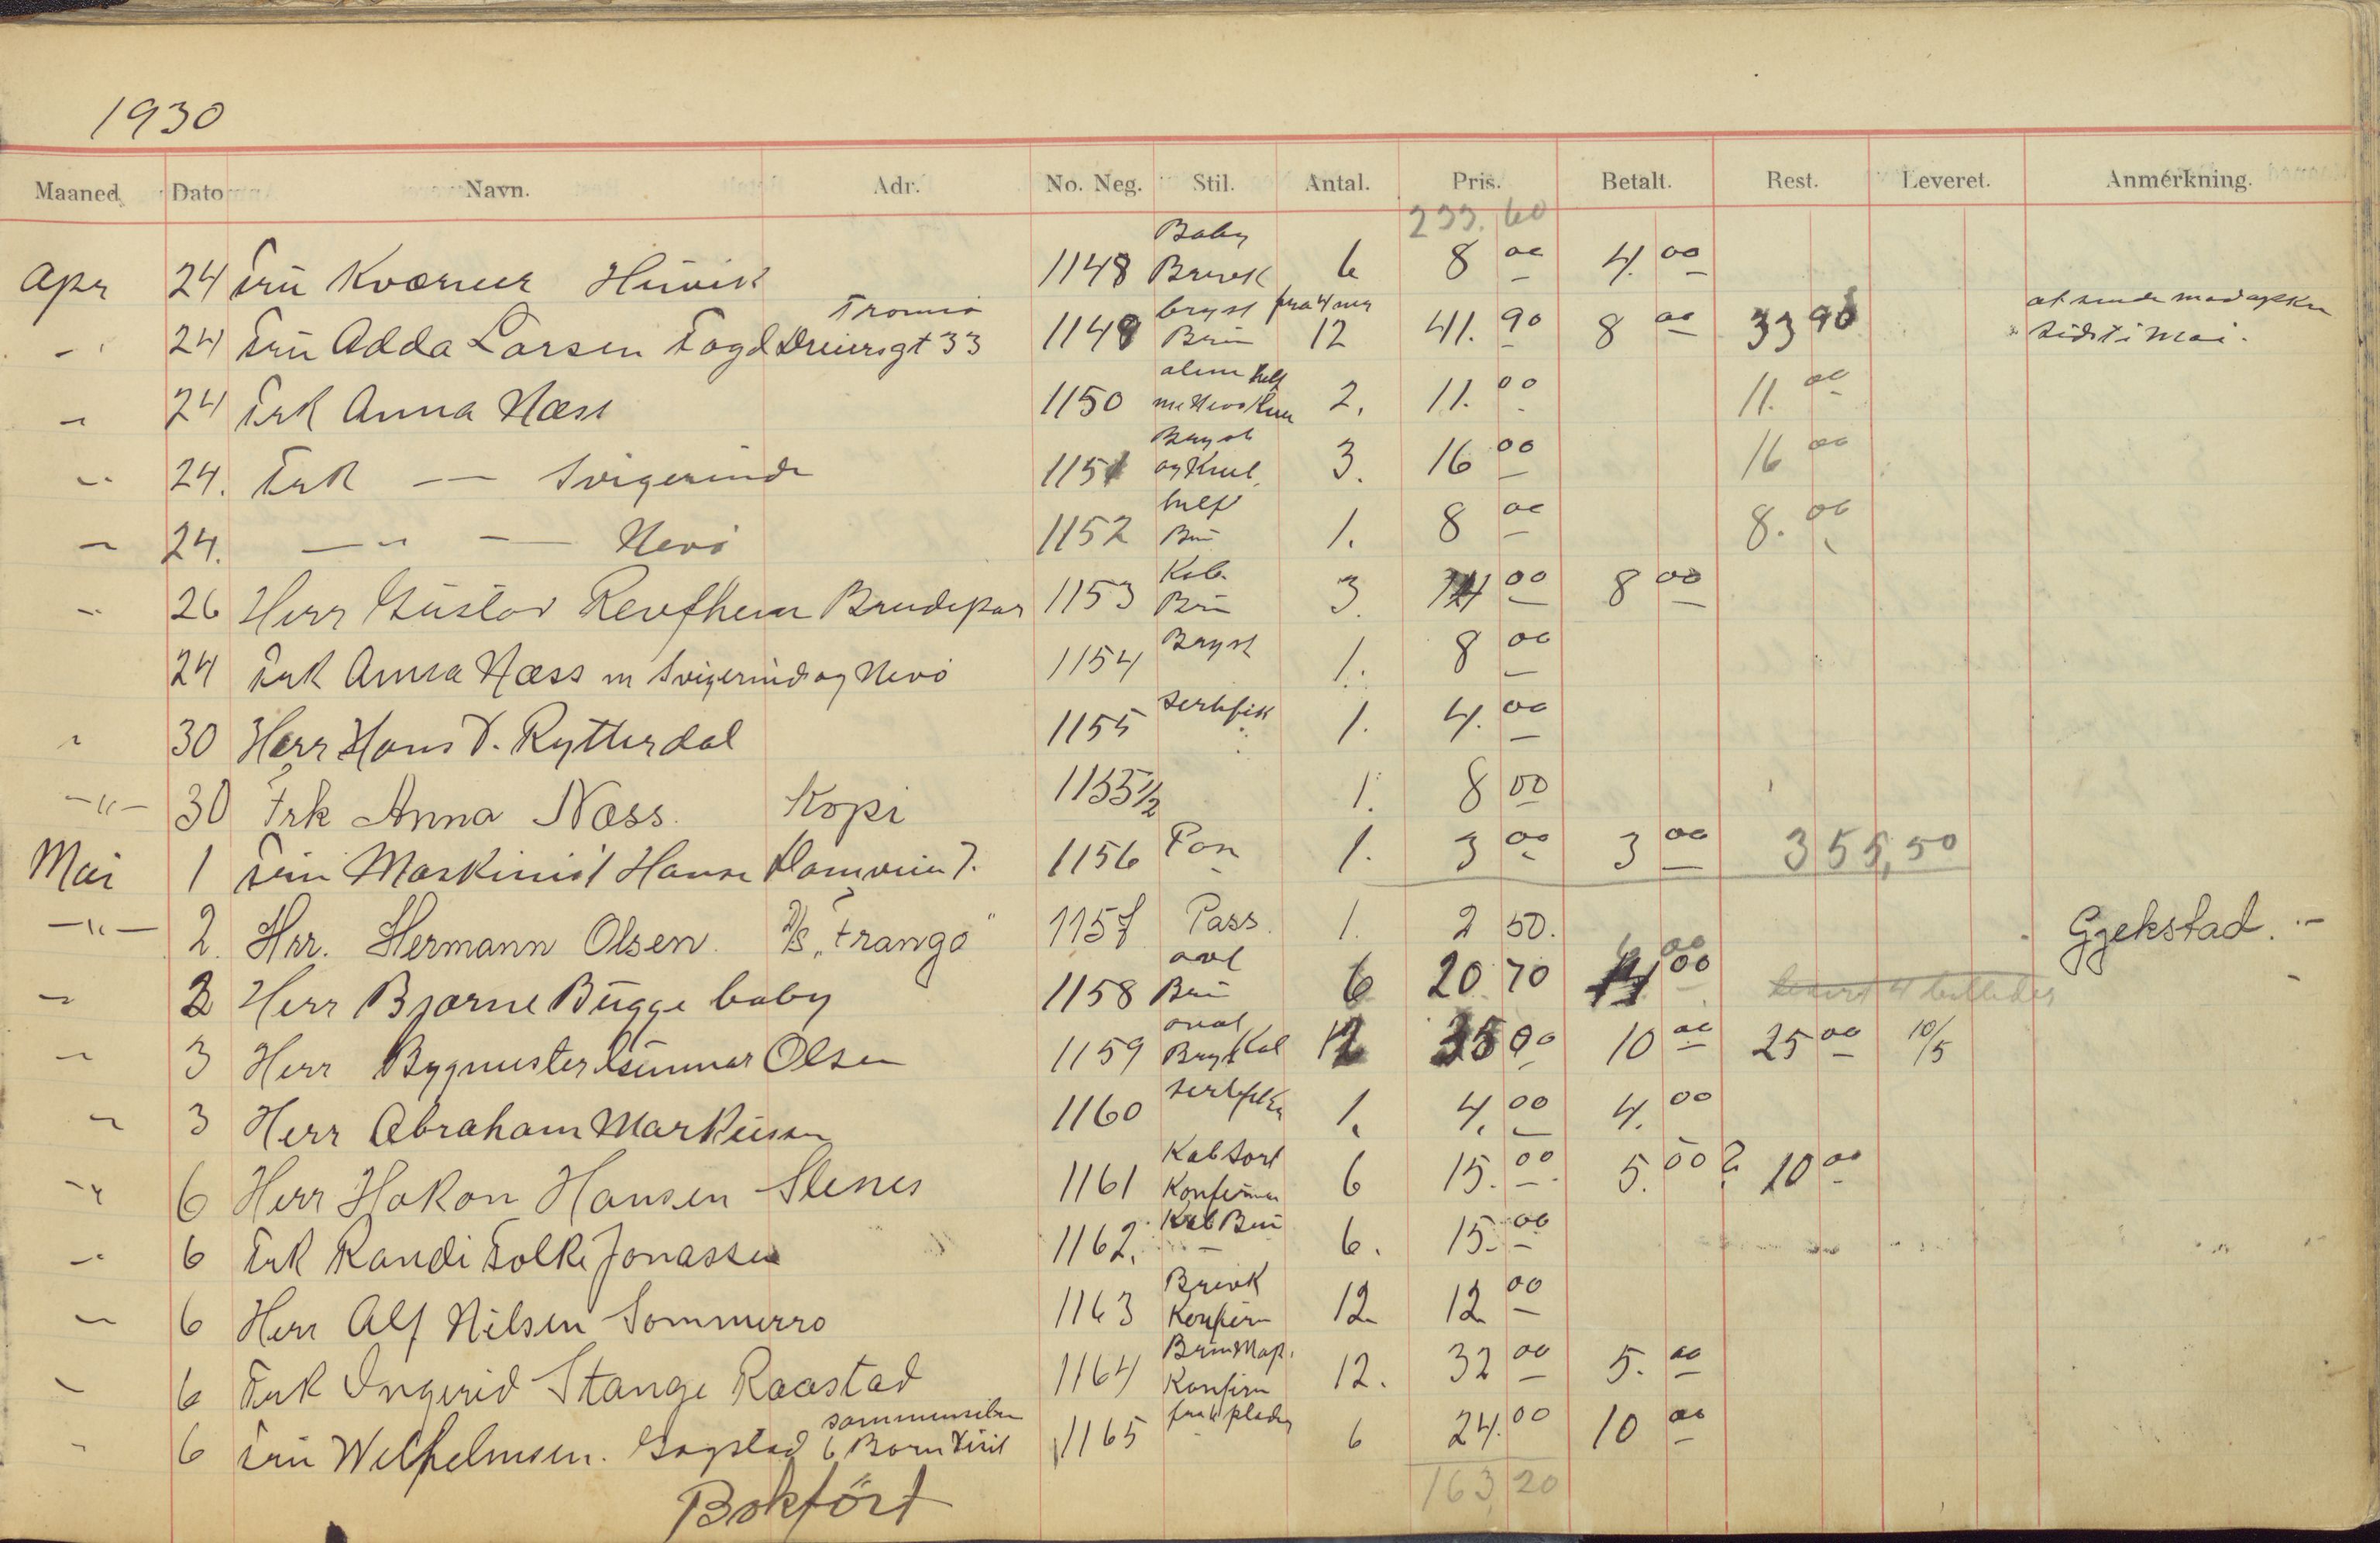 1930
Maaned Dato Navn. Adr. No. Neg. Stil. Antal. Pris. Betalt. Rest. Leveret. Anmerkning.
233.60
Apr 24 Frü Kværner Hüvik 1148 Baby Brevk 6 8 00 4. 00
24 Frü Adda Larsen Fogd Dreiersgt 33 Tromö 1149 bryst Brün 12 41. 90 8 00 33 90 sidst i Mai.
24 Frk Anna Næss 1150 2. 11. 00 11. 00
24. Frk — Svigerinde 1151 Bryst og Knæ 3. 16 00 16 00
24. —"— Nevö 1152 1. 8 00 8. 00
26 Herr Güstav Brudepar 1153 Kab. Brün 3. 14 00 8 00
24 Frk Anna Næss m Svigerind og Nevö 1154 Bryst 1. 8 00
30 Herr Hans T. Rytterdal 1155 sertifik 1. 4. 00
—"— 30 Frk Anna Næss. Kopi 1155 1/2 1. 8 00
Mai 1 Frü Maskinist 1156 1. 3 00 3 00 355,50
—"— 2. Hrr. Hermann Olsen. D/s. "Frango" 1157 Pass. 1. 2 50. Gjekstad.
2 Herr Bjarne Bügge baby 1158 oval Brü 6 20 70 00
3 Herr Bygmester Günnar Olsen 1159 oval Bryst Kab 12 35 00 10 00 25 00 10/5
3 Herr Abraham Marküssen 1160 1. 4. 00 4. 00
6 Herr Hakon Hansen Slenes 1161 Kab Sort Konfirman 6 15. 00 5. 00? 10 00
6 Frk Randi Folke Jonassen 1162. Kab Brü 6. 15. 00
6 Herr Alf Nilsen Sommerro 1163 Brevk Konfirm 12 12 00
6 Frk Ingerid Stange Raastad 1164 Brün Map. Konfirm 12. 32 00 5. 00
6 Frü Wilhelmsen. Gogstad 6 Born Visit 1165 6 24. 00 10 00
163,20
Bokfört